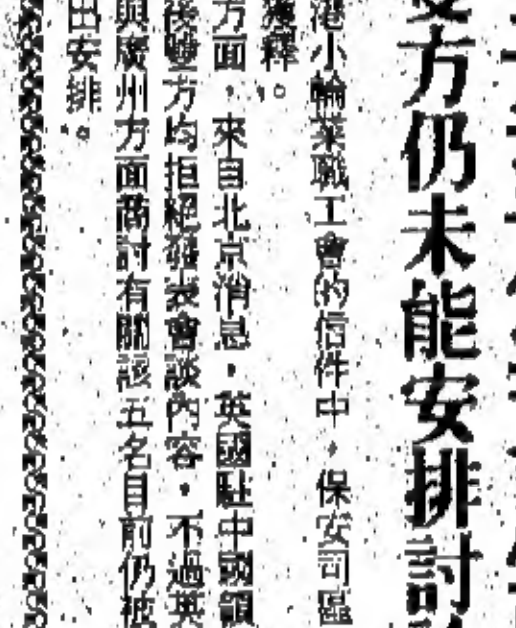 方仍未能安排討
港小輪業職工會的信件中，保安司區
獲釋。
方面，來自北京消息，英國駐中國領
後雙方均拒絕發表會談內容，不過英
與廣州方面商討有關該五名目前仍被
出安排。